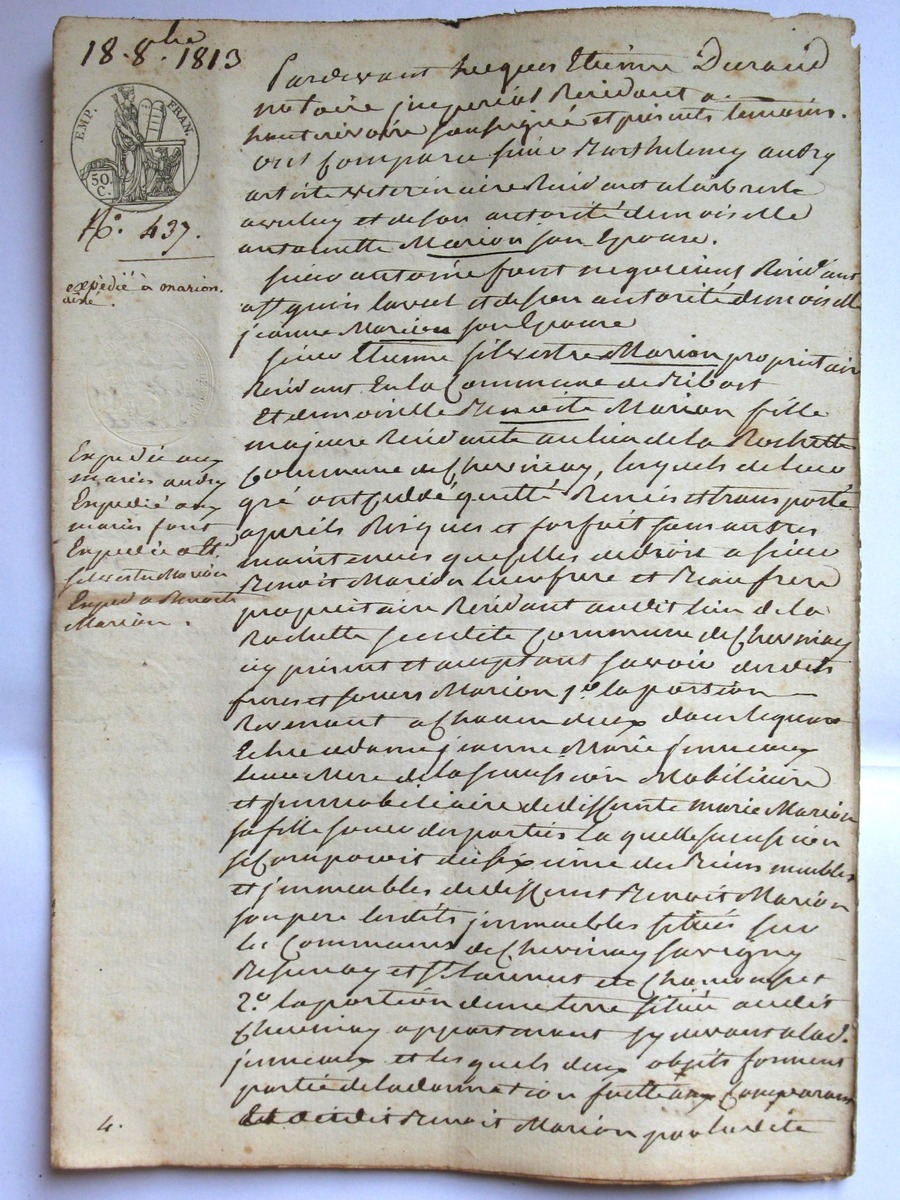 18. 8bre 1813
EMP. FRAN.
50. C.
N.o 437.
expédié à marion
ainé.
Expédié aux
mariés audry
Expédié aux
mariés font
Expédié a Et.
silvestre Marion
Exped a Benoite
Marion.
Pardevant Jacques Etienne Durand
notaire imperial Residant a
hauterivoire soussigné et présents temoins.
ont Comparu sieur Barthelemy audry
artiste veterinaire Residant a larbresle
et de son autorité demoiselle
antoinette Marion son Epouse.
sieur antoine font negociant Residant
et de son autorité demoiselle
jeanne Marion son Epouse
sieur Etienne silvestre Marion proprietaire
Residant En la Commune de Bibost
Et demoiselle Benoite Marion fille
majeure Residante au lieu de la Rochette
Commune de Chevinay, lesquels de leur
gré ont cédé quitté Remis et transporté
a perils Risques et forfait sans autres
maintenues que celles de droit a sieur
Benoit Marion leur frere et Beau frere
propriétaire Residant audit lieu de la
Rochette susdite Commune de Chevinay
icy présent et acceptant savoir lesdits
freres et soeurs Marion 1o la portion
Revenant a Chacun deux dans le quart
Echu a dame jeanne Marie
leur Mere de la succession Mobiliaire
et jmmobiliaire de deffunte marie Marion
sa fille soeur des parties la quelle succession
se Composoit du sixieme des Biens meubles
et jmmeubles de deffunt Benoit Marion
son pere lesdits jmmeubles situés sur
les Communes de Chevinay savigny
Bessenay et St. laurent de Chamousset
2o la portion de terre située audit
Chevinay appartenant cy devant a lad.
et les quels deux objets forment
partie de la donnation faitte aux Comparants
et audit Benoit Marion par ladite
4.